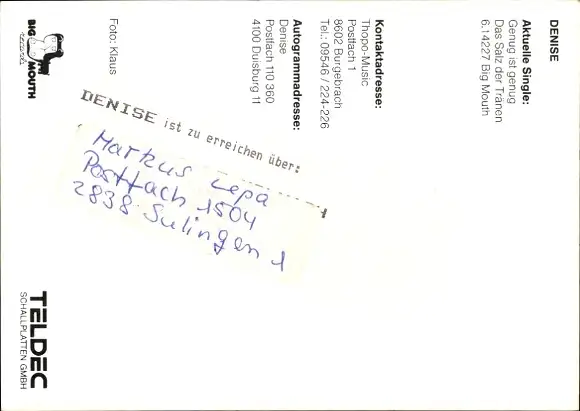 DENISE
Aktuelle Single:
Genug ist genug
Das Salz der Tränen
6.14227 Big Mouth
Kontaktadresse:
Thopo-Music
Postfach 1
8602 Burgebrach
Tel.: 09546 / 224-226
Autogrammadresse:
Denise
Postfach 110 360
4100 Duisburg 11
Foto: Klaus
BIG MOUTH
records
DENISE ist zu erreichen über:
Markus Lepa
Postfach 1504
2838 Sulingen 1
TELDEC
SCHALLPLATTEN GMBH